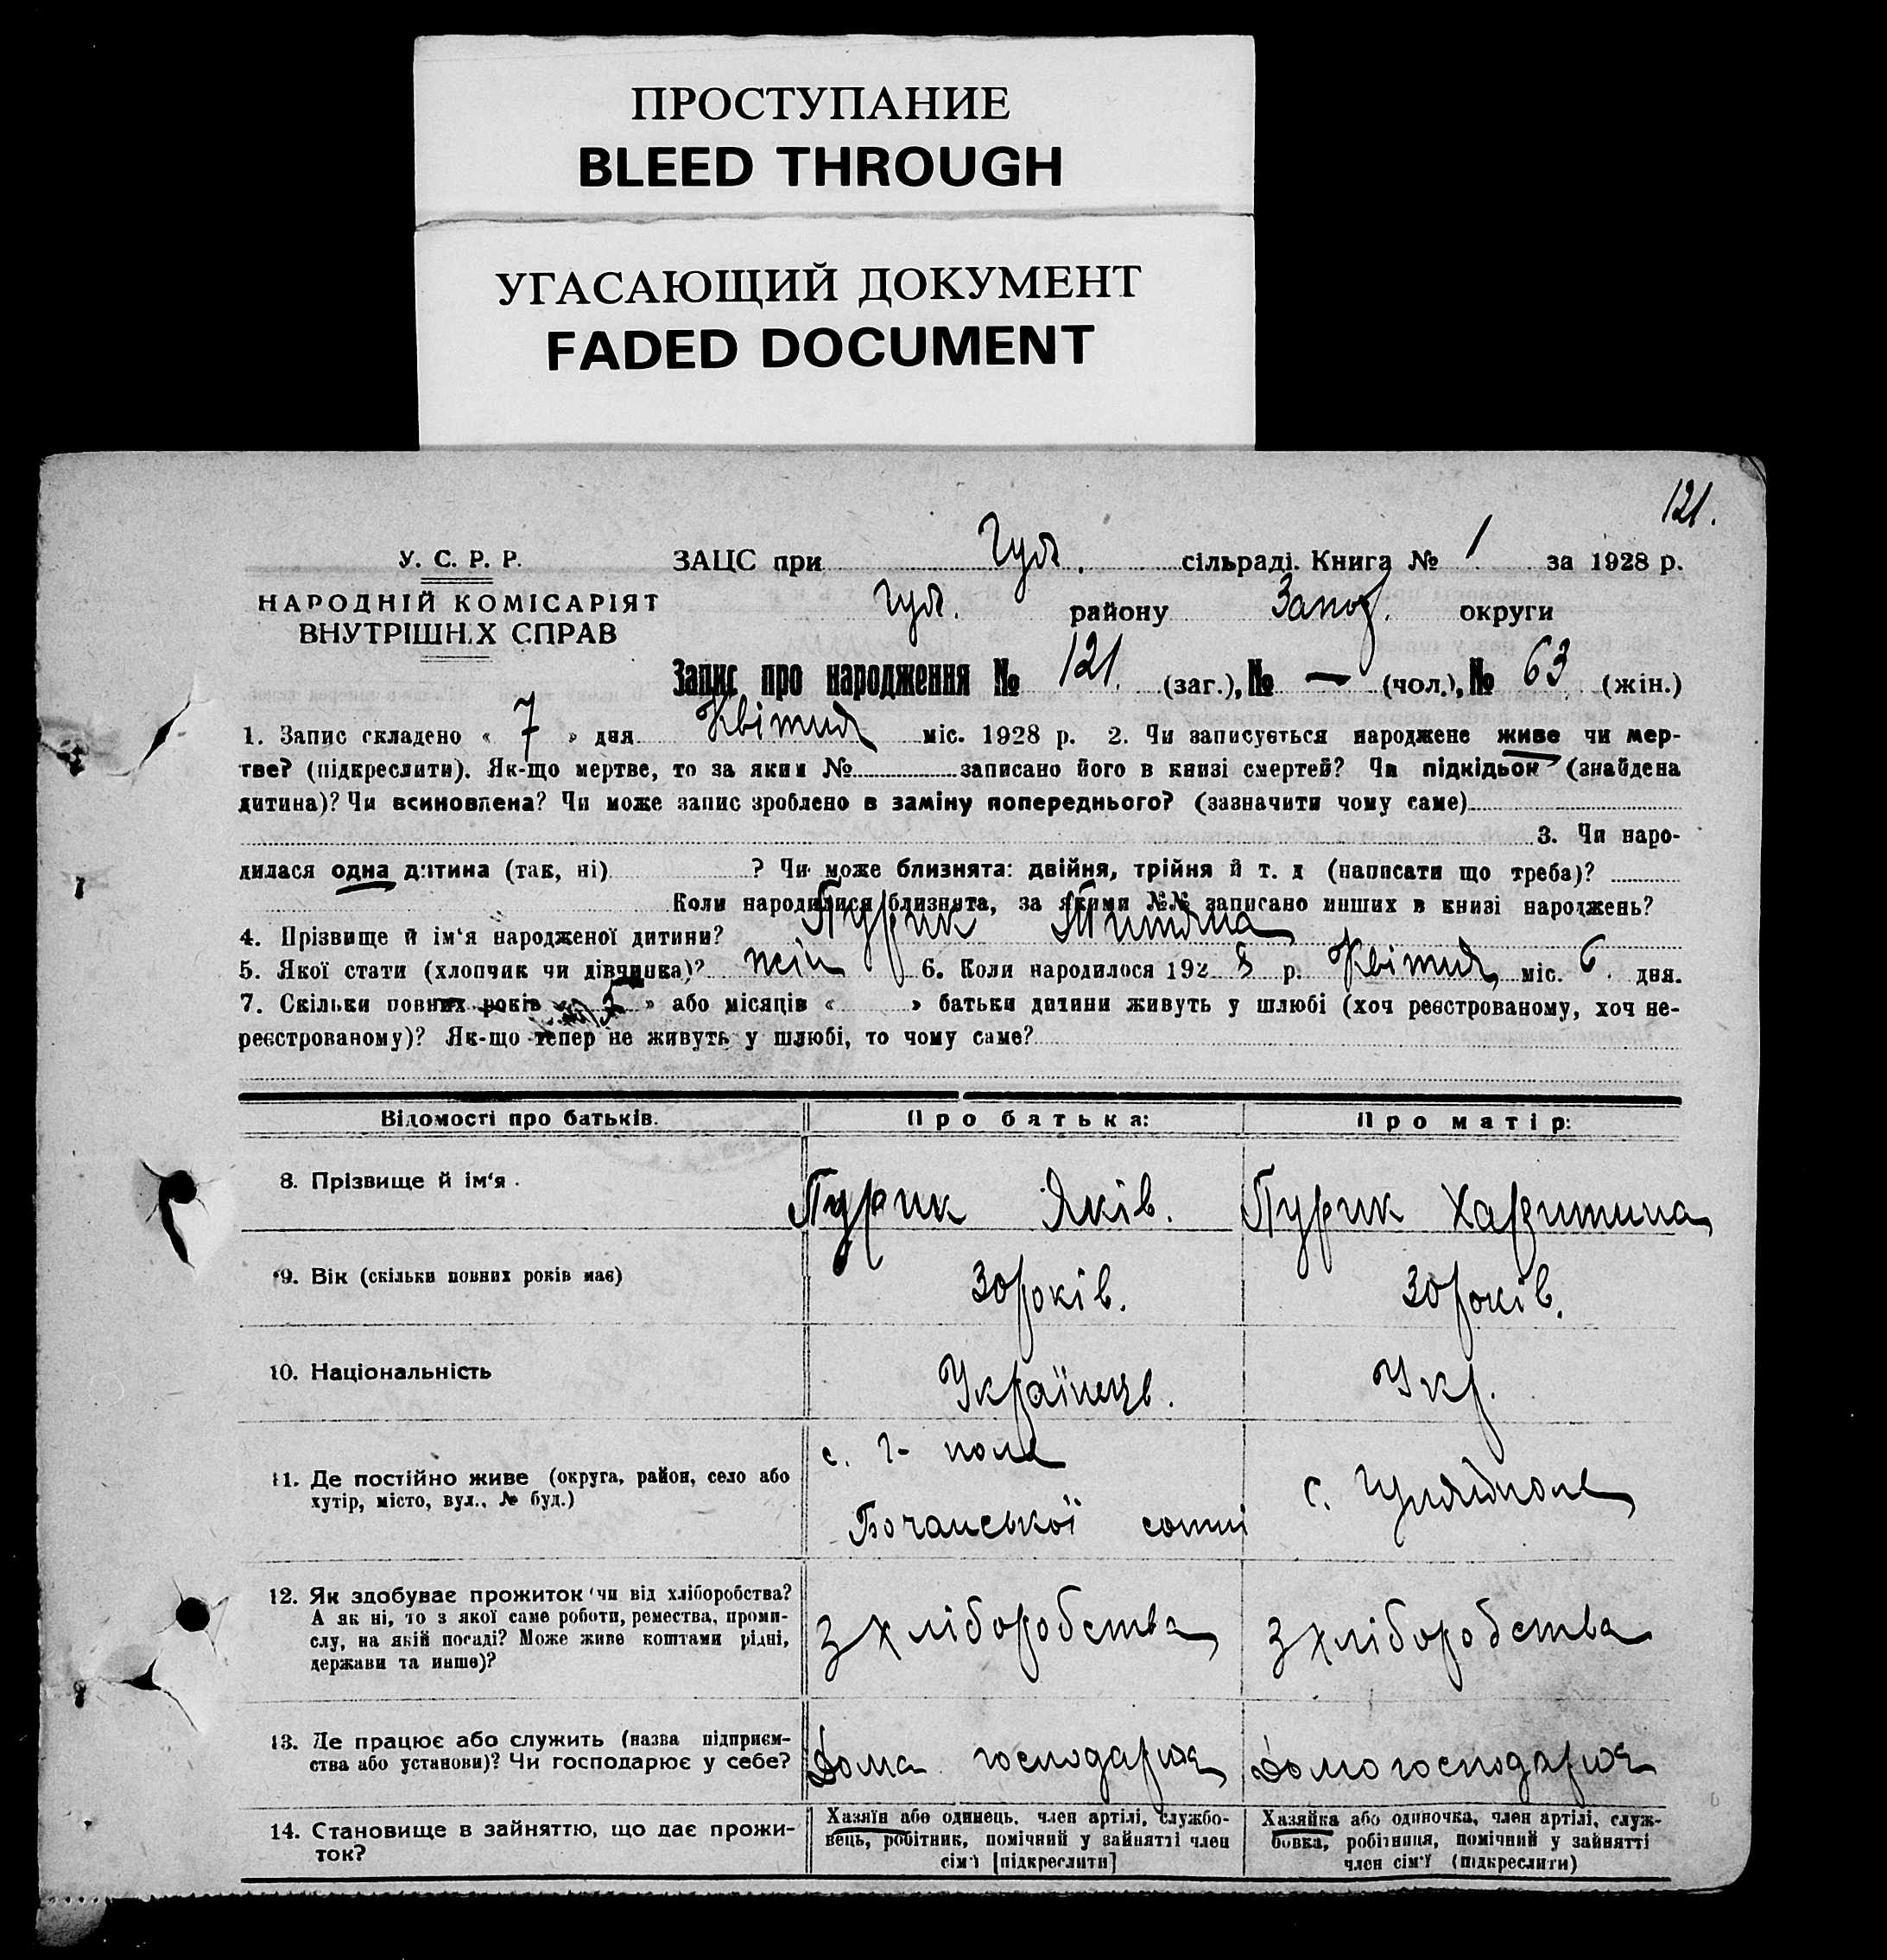 ПРОСТУПАНИЕ
BLEED THROUGH
УГАСАЮЩИЙ ДОКУМЕНТ
FADED DOCUMENT
121.
У. С. Р. Р.
НАРОДНІЙ КОМІСАРІЯТ
ВНУТРІШНІХ СПРАВ
ЗАЦС при Гул. сільраді. Книга № 1 за 1928 р.
Гул. району Запор. округи
Запис про народження № 121. (заг.), № — (чол.), № 63 (жін.)
1. Запис складено « 7 » дня Квітня міс. 1928 р. 2. Чи записується народжене живе чи мер-
тве? (підкреслити). Як-що мертве, то за яким № записано його в книзі смертей? Чи підкідьок (знайдена
дитина)? Чи всиновлена? Чи може запис зроблено в заміну попереднього? (зазначити чому саме)
3. Чи наро-
дилася одна дитина (так, ні) ? Чи може близнята: двійня, трійня й т. д (написати що треба)?
Коли народилися близнята, за якими №№ записано инших в книзі народжень?
4. Прізвище й ім'я народженої дитини? Пурик Титяна
5. Якої стати (хлопчик чи дівчинка)? жін 6. Коли народилося 1928 р. Квітня міс. 6. дня.
7. Скільки повних років « » або місяців « » батьки дитини живуть у шлюбі (хоч реєстрованому, хоч не-
реєстрованому)? Як-що тепер не живуть у шлюбі, то чому саме?
Відомості про батьків. Про батька: Про матір:
8. Прізвище й ім'я. Пурик Яків. Пурик Харитина
9. Вік (скільки повних років має) 30 років. 30 років.
10. Національність Українець. Укр.
11. Де постійно живе (округа, район, село або
хутір, місто, вул., № буд.)
с. Г- поле
Бочанської сотні
с. Гуляйполе
12. Як здобуває прожиток чи від хліборобства?
А як ні, то з якої саме роботи, ремества, проми-
слу, на якій посаді? Може живе коштами рідні,
держави та инше)?
З хліборобства З хліборобства
13. Де працює або служить (назва підприєм-
ства або установи)? Чи господарює у себе?
Дома господарює Домогосподарює
14. Становище в зайняттю, що дає прожи-
ток?
Хазяїн або одинець, член артілі, службо-
вець, робітник, помічний у зайнятті член
сім'ї [підкреслити]
Хазяйка або одиночка, член артілі, служ-
бовка, робітниця, помічний у зайнятті
член сім'ї (підкреслити)